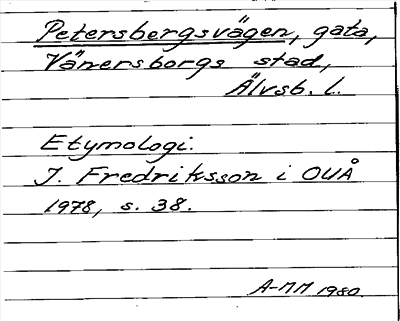 Petersbergsvägen, gata,
Vänersborgs stad,
Älvsb. l.
Etymologi:
J. Fredriksson i OUÅ
1978, s. 38.
A-MM 1980.